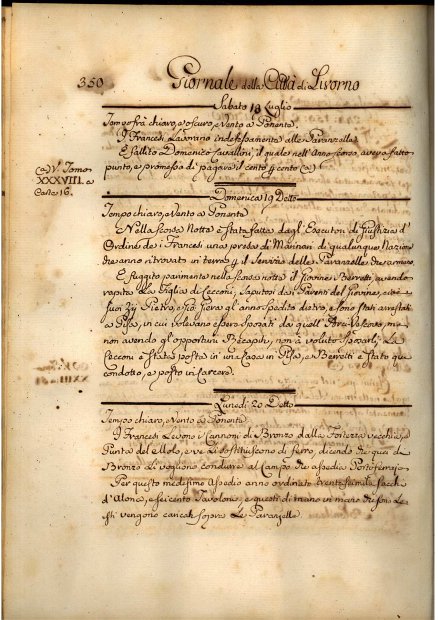 350 Giornale della Città di Livorno
Sabato 18 Luglio
Tempo frà chiaro, e oscuro, e Vento a Ponente.
I Francesi Lavorano indefessamente alle Paranzelle.
È fallito Domenico Cavallini, il quale nell'Anno scorso aveva fatto
punto, e promesso di pagare il cento p cento (a)
(a) V. Tomo
XXXVIII. a
Carte 16.
Domenica 19 Detto
Tempo chiaro, e Vento a Ponente
Nella scorsa Notte è stata fatta dagl'Esecutori di Giustizia d'
Ordine de i Francesi una presa di Marinari di qualunque Nazione
che anno ritrovato in terra p il Servizio delle Paranzelle
È fuggito parimente nella scorsa notte il Giovine Berretti avendo
rapita La Figlia di Cecconi, Saputosi da i Parenti del Giovine, cioè
suoi Zij Pietro, e gl'anno spedito dietro, e sono stati arrestati
a Pisa, in cui volevano essere sposati da quell' Arcivescovo, ma
non avendo gl'opportuni Recapiti, non à voluto sposarli. La
Cecconi è stata posta in una Casa in Pisa, e Berretti è stato qui
condotto, e posto in Carcere.
Lunedì 20 Detto
Tempo chiaro, e Vento a Ponente.
I Francesi Levano i Cannoni di Bronzo dalla Fortezza vecchia, e
Punta del Molo, e ve li sostituiscono di ferro, dicendo che quei di
Bronzo Li vogliono condurre al Campo che assedia Portoferrajo
Per questo medesimo Assedio anno ordinato trentaseimila sacche
d'Alone, e seicento Tavoloni, e questi di mano in mano che son Le
sti vengono caricati sopra Le Paranzelle.